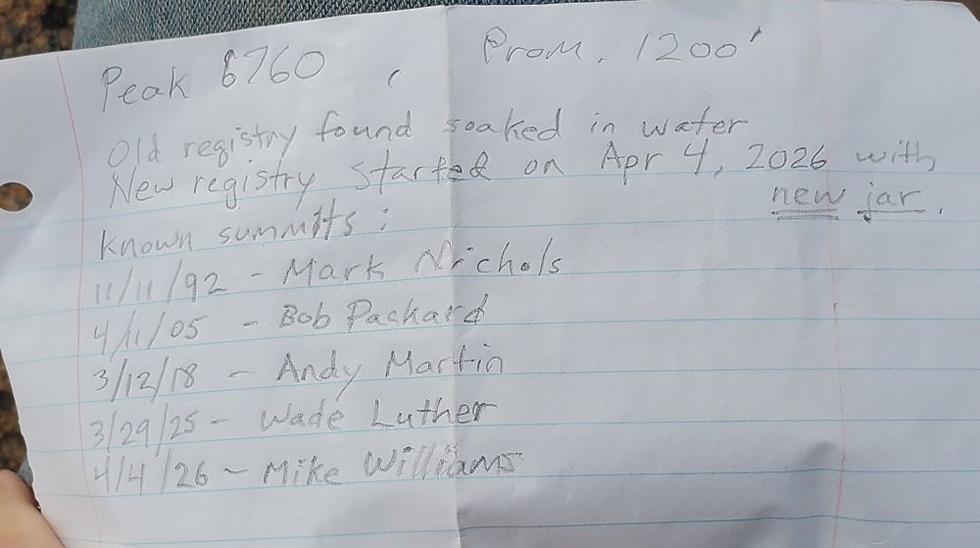 Peak 6760 , Prom. 1200'
Old registry found soaked in water
New registry started on Apr 4, 2026 with
new jar.
Known summits :
11/11/92 - Mark Nichols
4/1/05 - Bob Packard
3/12/18 - Andy Martin
3/29/25 - Wade Luther
4/4/26 - Mike Williams